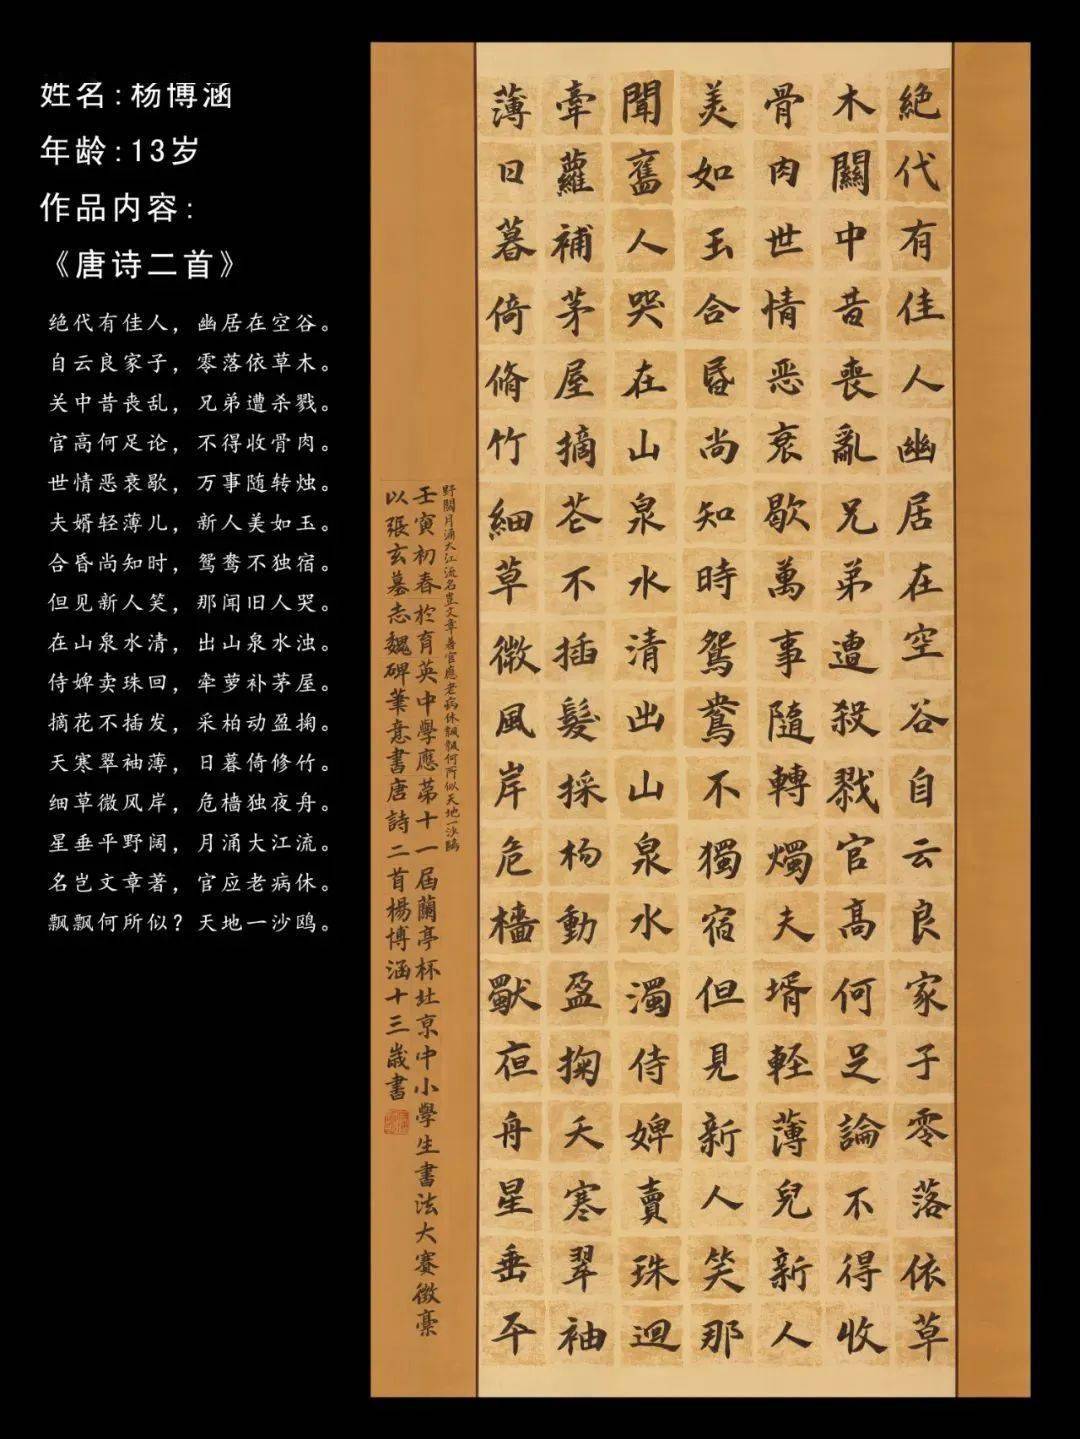 姓名:杨博涵
年龄:13岁
作品内容:
《唐诗二首》
绝代有佳人，幽居在空谷。
自云良家子，零落依草木。
关中昔丧乱，兄弟遭杀戮。
官高何足论，不得收骨肉。
世情恶衰歇，万事随转烛。
夫婿轻薄儿，新人美如玉。
合昏尚知时，鸳鸯不独宿。
但见新人笑，那闻旧人哭。
在山泉水清，出山泉水浊。
侍婢卖珠回，牵萝补茅屋。
摘花不插发，采柏动盈掬。
天寒翠袖薄，日暮倚修竹。
细草微风岸，危樯独夜舟。
星垂平野阔，月涌大江流。
名岂文章著，官应老病休。
飘飘何所似？天地一沙鸥。
絕代有佳人幽居在空谷自云良家子零落依草
木關中昔喪亂兄弟遭殺戮官高何足論不得收
骨肉世情恶衰歇萬事隨轉燭夫壻輕薄兒新人
美如玉合昏尚知時鴛鴦不獨宿但見新人笑那
聞舊人哭在山泉水清出山泉水濁侍婢賣珠迴
牽蘿補茅屋摘花不插髮採柏動盈掬天寒翠袖
薄日暮倚脩竹細草微風岸危檣獨夜舟星垂平
野闊月涌大江流名豈文章著官應老病休飄飄何所似天地一沙鷗
壬寅初春於育英中學應第十一屆蘭亭杯北京中小學生書法大賽徵稾
以張玄墓志魏碑筆意書唐詩二首楊博涵十三歲書